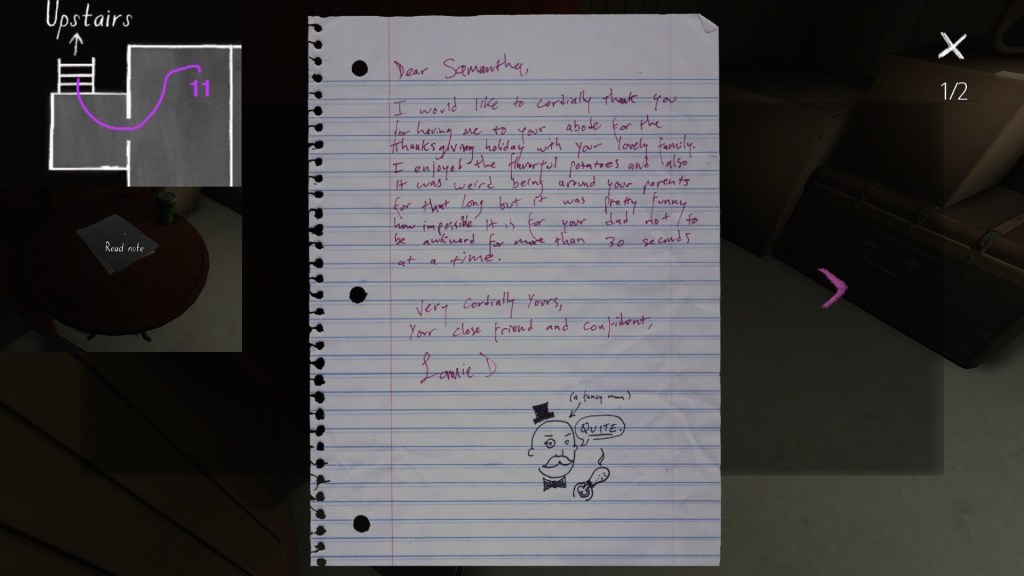 Upstairs
11
Read note
1/2
Dear Samantha,
I would like to cordially thank you
for having me to your abode for the
thanksgiving holiday with your lovely family.
I enjoyed the flavorful potatoes and also
it was weird being around your parents
for that long but it was pretty funny
how impossible it is for your dad not to
be awkward for more than 30 seconds
at a time.
Very Cordially Yours,
Your close friend and confident,
Lonnie D
(a fancy man)
QUITE.